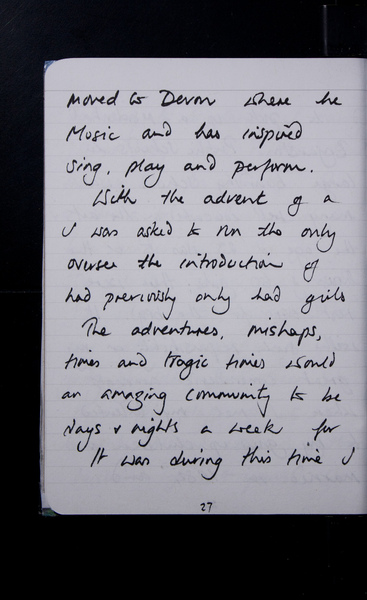 moved to Devon where he
Music and has inspired
sing, play and perform.
With the advent of a
I was asked to run the only
oversee the introduction of
had previously only had girls
The adventures, mishaps,
times and tragic times would
an amazing community to be
days & nights a week for
It was during this time I
27